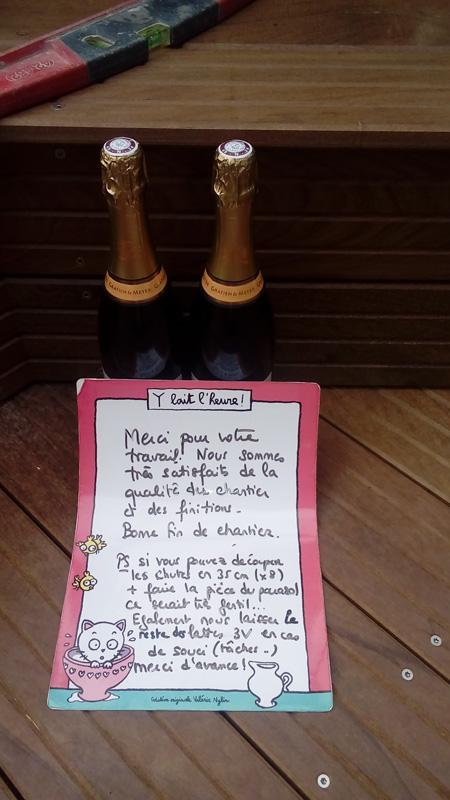 GRATIEN & MEYER
GRATIEN & MEYER
Y lait l'heure!
Merci pour votre
travail. Nous sommes
très satisfaits de la
qualité du chantier
et des finitions.
Bonne fin de chantier.
PS si vous pouvez découper
les chutes en 35 cm (x8)
+ faire la pièce du parasol
ce serait très gentil...
Egalement nous laisser le
reste des lattes 3V en cas
de souci (tâches..)
merci d'avance!
Création originale Valérie Nylin